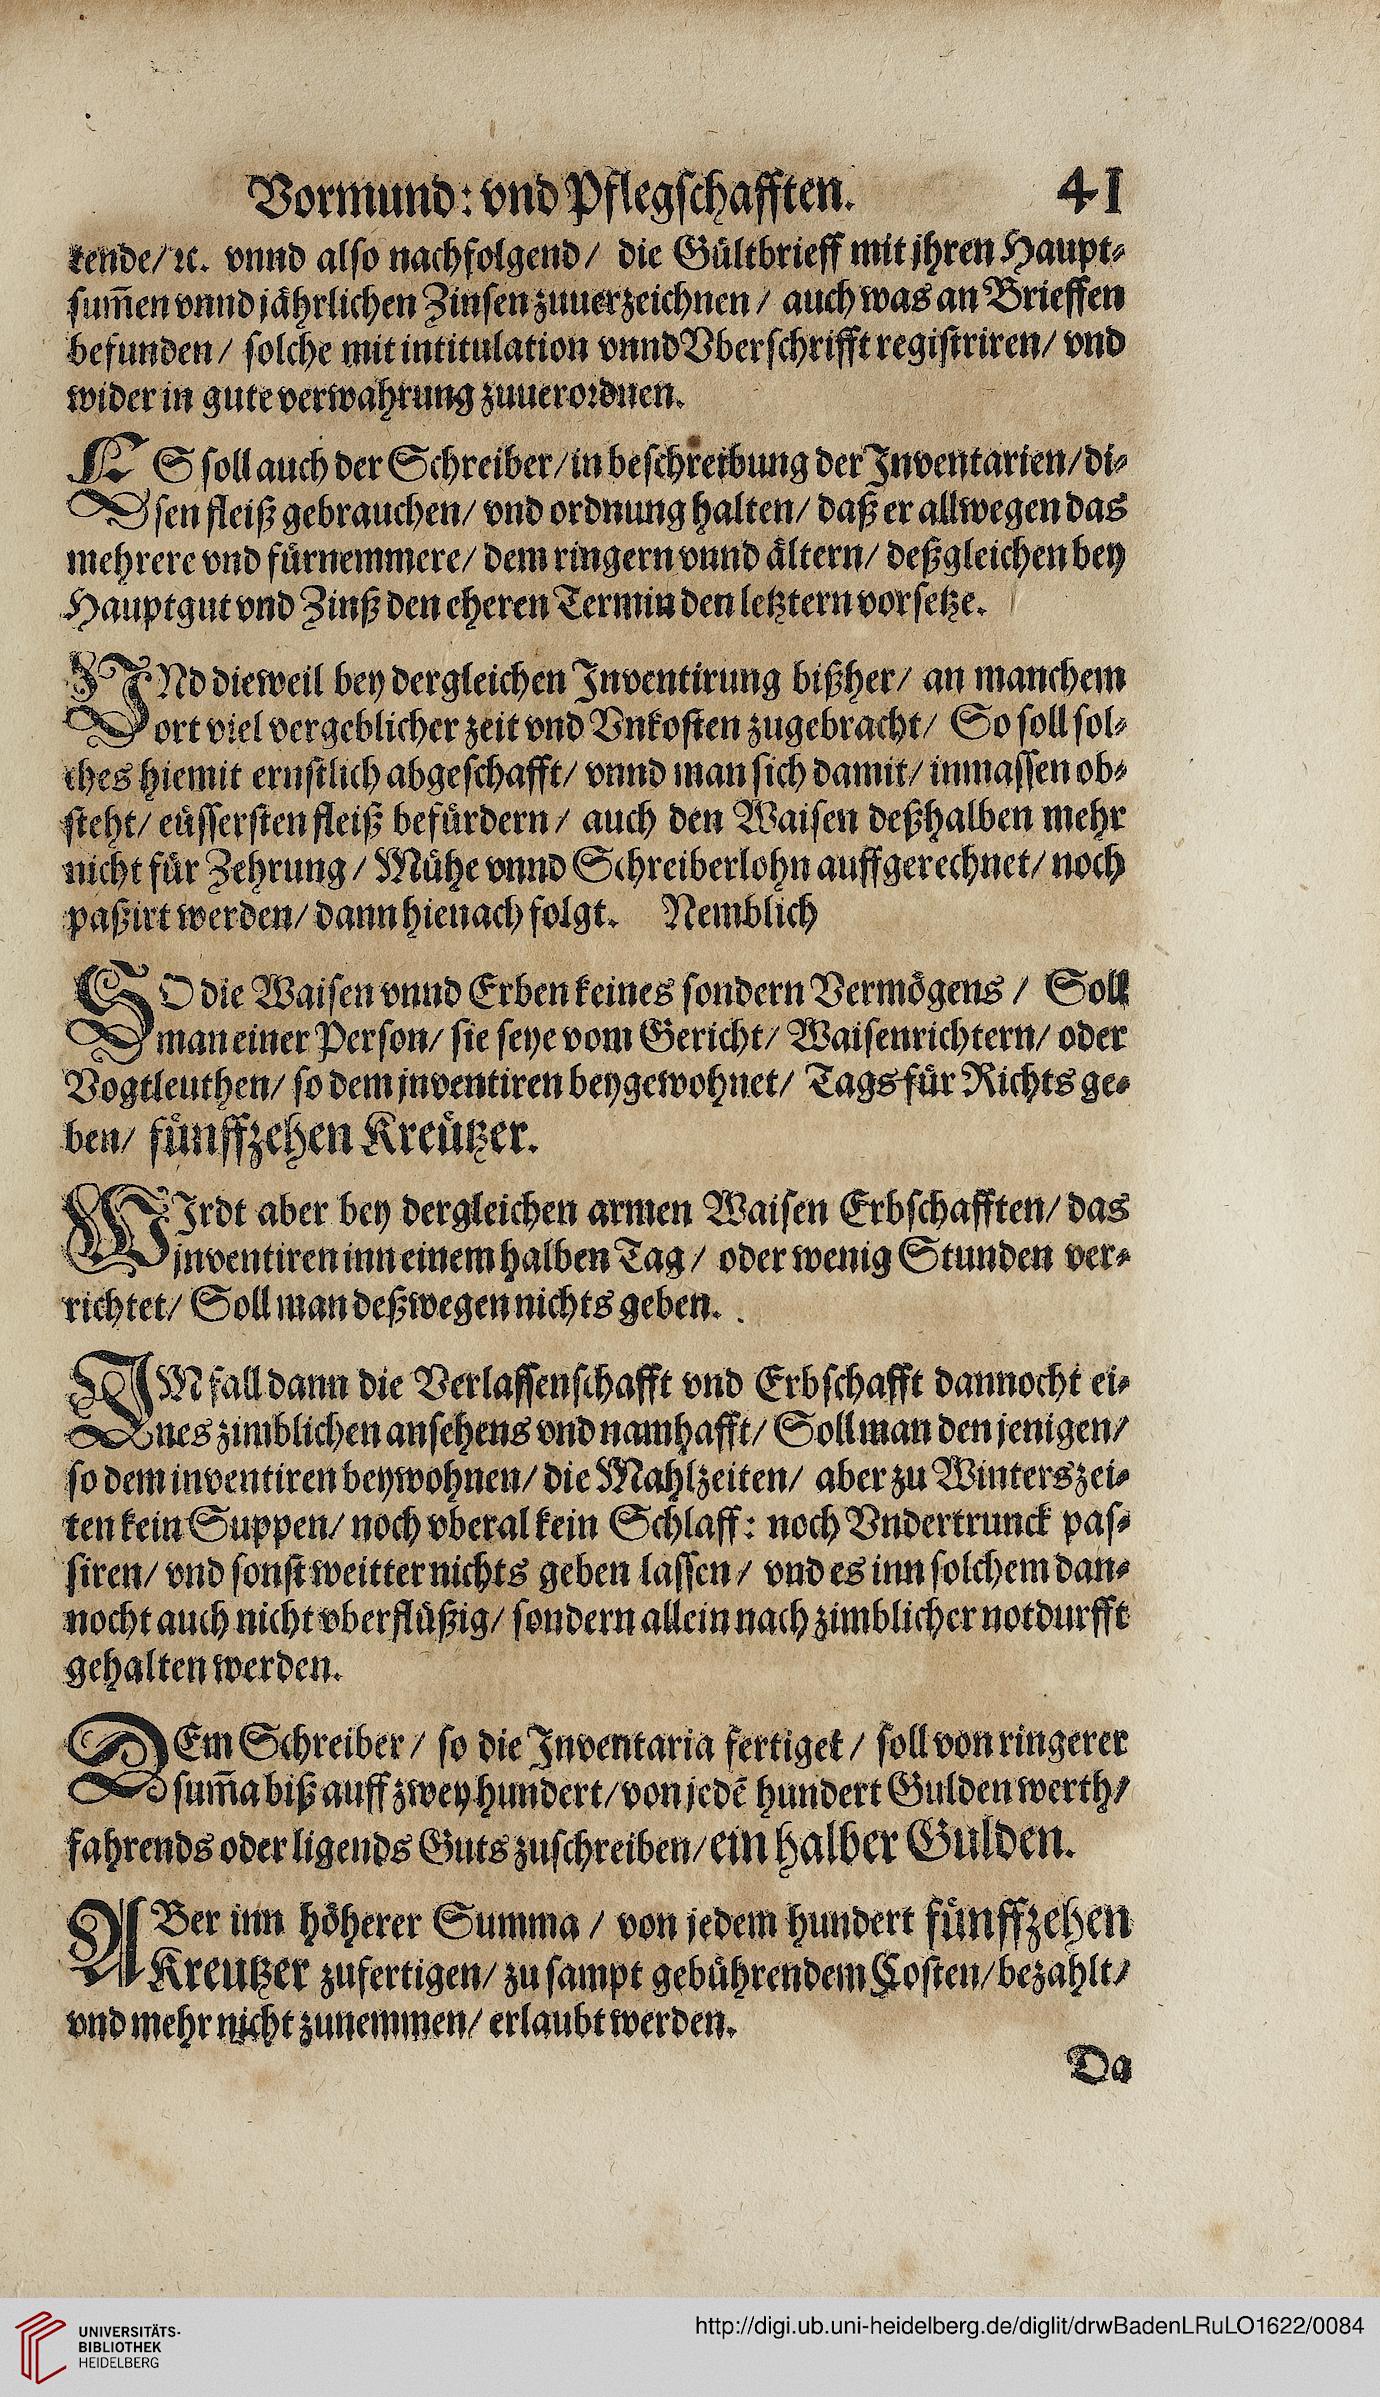 Vormund: vnd Pflegschafften. 41
kende/ ꝛc. vnnd also nachfolgend/ die Gültbrieff mit jhren Haupt⸗
sum̃en vnnd jährlichen Zinsen zuuerzeichnen/ auch was an Brieffen
befunden/ solche mit intitulation vnnd Vberschrifft registriren/ vnd
wider in gute verwahrung zuuerordnen.
ES soll auch der Schreiber/ in beschreibung der Inventarien/ di⸗
sen fleiß gebrauchen/ vnd ordnung halten/ daß er allwegen das
mehrere vnd fürnemmere/ dem ringern vnnd ältern/ deßgleichen bey
Hauptgut vnd Zinß den eheren Termin den letztern vorsetze.
VNd dieweil bey dergleichen Inventirung bißher/ an manchem
ort viel vergeblicher zeit vnd Vnkosten zugebracht/ So soll sol⸗
ches hiemit ernstlich abgeschafft/ vnnd man sich damit/ inmassen ob⸗
steht/ eüssersten fleiß befürdern/ auch den Waisen deßhalben mehr
nicht für Zehrung/ Mühe vnnd Schreiberlohn auffgerechnet/ noch
paßirt werden/ dann hienach folgt. Nemblich
SO die Waisen vnnd Erben keines sondern Vermögens/ Soll
man einer Person/ sie seye vom Gericht/ Waisenrichtern/ oder
Vogtleuthen/ so dem jnventiren beygewohnet/ Tags für Richts ge⸗
ben/ fünffzehen Kreützer.
WIrdt aber bey dergleichen armen Waisen Erbschafften/ das
jnventiren inn einem halben Tag/ oder wenig Stunden ver⸗
richtet/ Soll man deßwegen nichts geben.
IM fall dann die Verlassenschafft vnd Erbschafft dannocht ei⸗
nes zimblichen ansehens vnd namhafft/ Soll man den jenigen/
so dem inventiren beywohnen/ die Mahlzeiten/ aber zu Winterszei⸗
ten kein Suppen/ noch vberal kein Schlaff: noch Vndertrunck pas⸗
siren/ vnd sonst weitter nichts geben lassen/ vnd es inn solchem dan⸗
nocht auch nicht vberflüßig/ sondern allein nach zimblicher notdurfft
gehalten werden.
DEm Schreiber/ so die Inventaria fertiget/ soll von ringerer
sum̃a biß auff zwey hundert/ von jedē hundert Gulden werth/
fahrends oder ligends Guts zuschreiben/ ein halber Gulden.
ABer inn höherer Summa/ von jedem hundert fünffzehen
Kreutzer zufertigen/ zu sampt gebührendem Costen/ bezahlt/
vnd mehr nicht zunemmen/ erlaubt werden.
Da
UNIVERSITÄTS-
BIBLIOTHEK
HEIDELBERG
http://digi.ub.uni-heidelberg.de/diglit/drwBadenLRuLO1622/0084